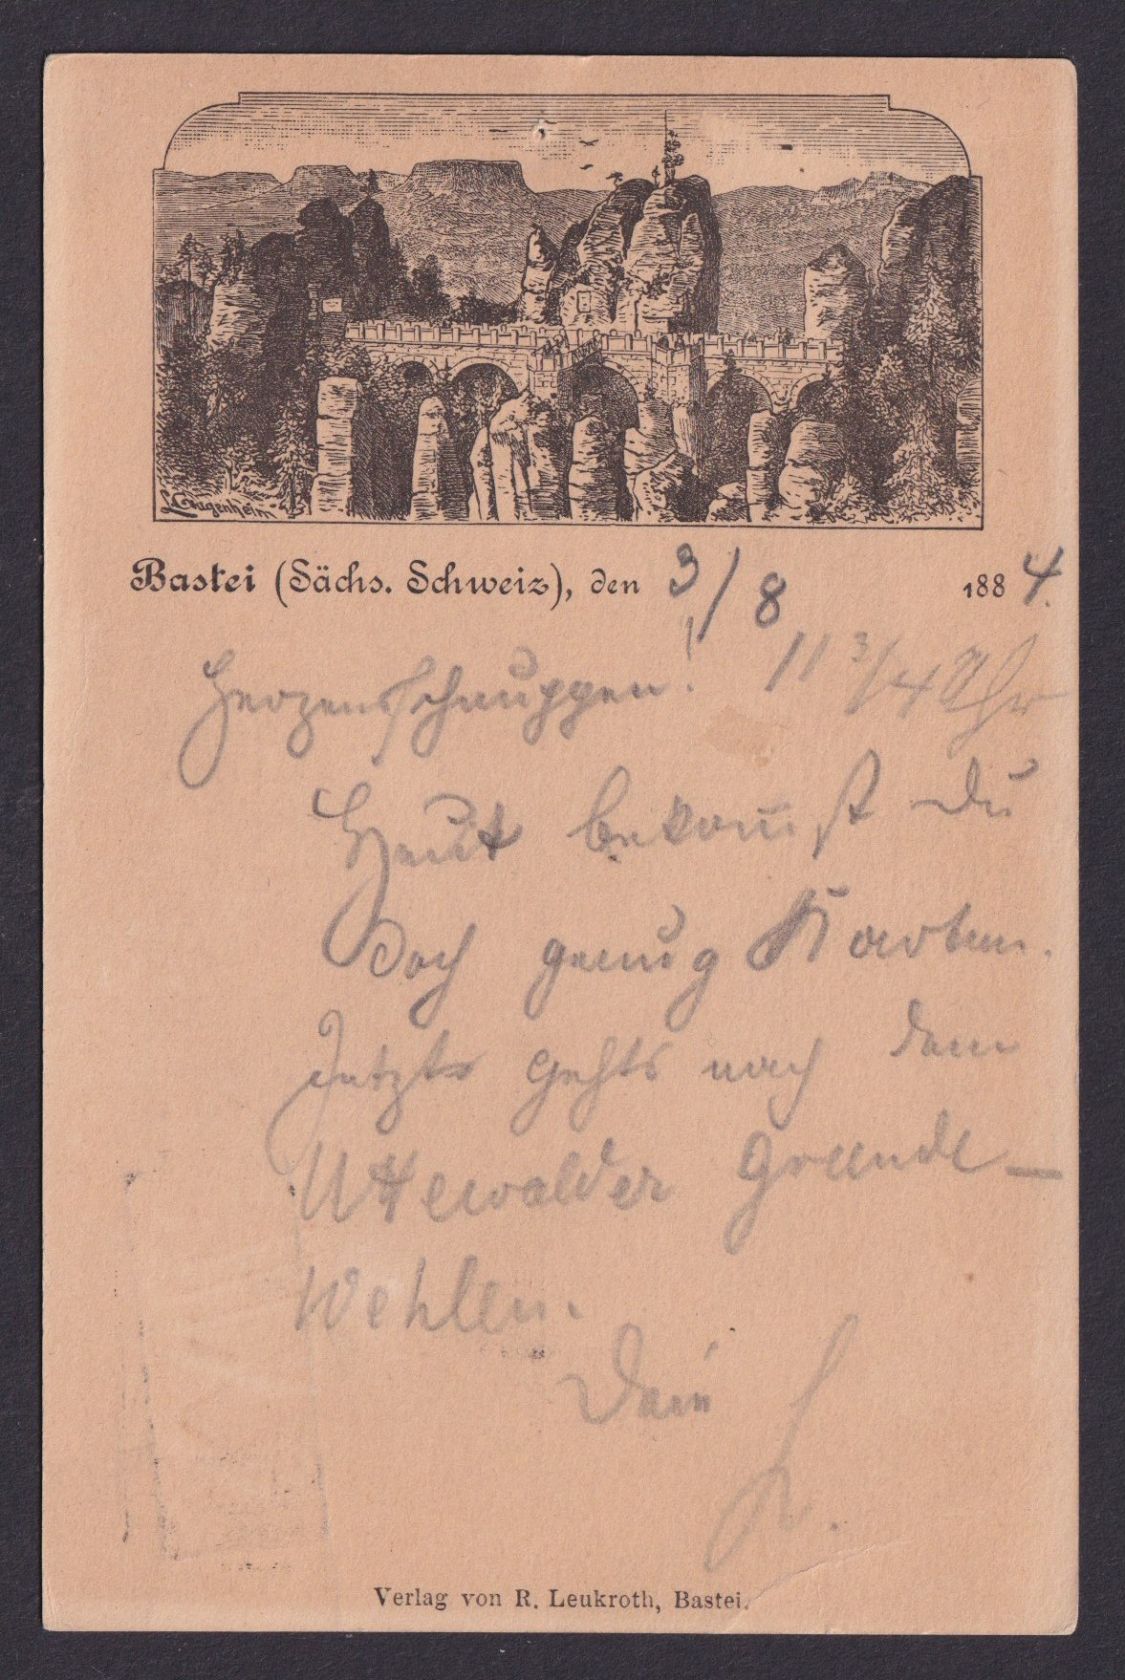 L. Guggenheim
Bastei (Sächs. Schweiz), den 3/8 1884.
Herzensschnuppen! 11 3/4 Uhr
Heut bekom̄st Du
doch genug Karten.
Jetzt gehts nach dem
Uttewalder Grunde –
Wehlen.
Dein
L.
Verlag von R. Leukroth, Bastei.